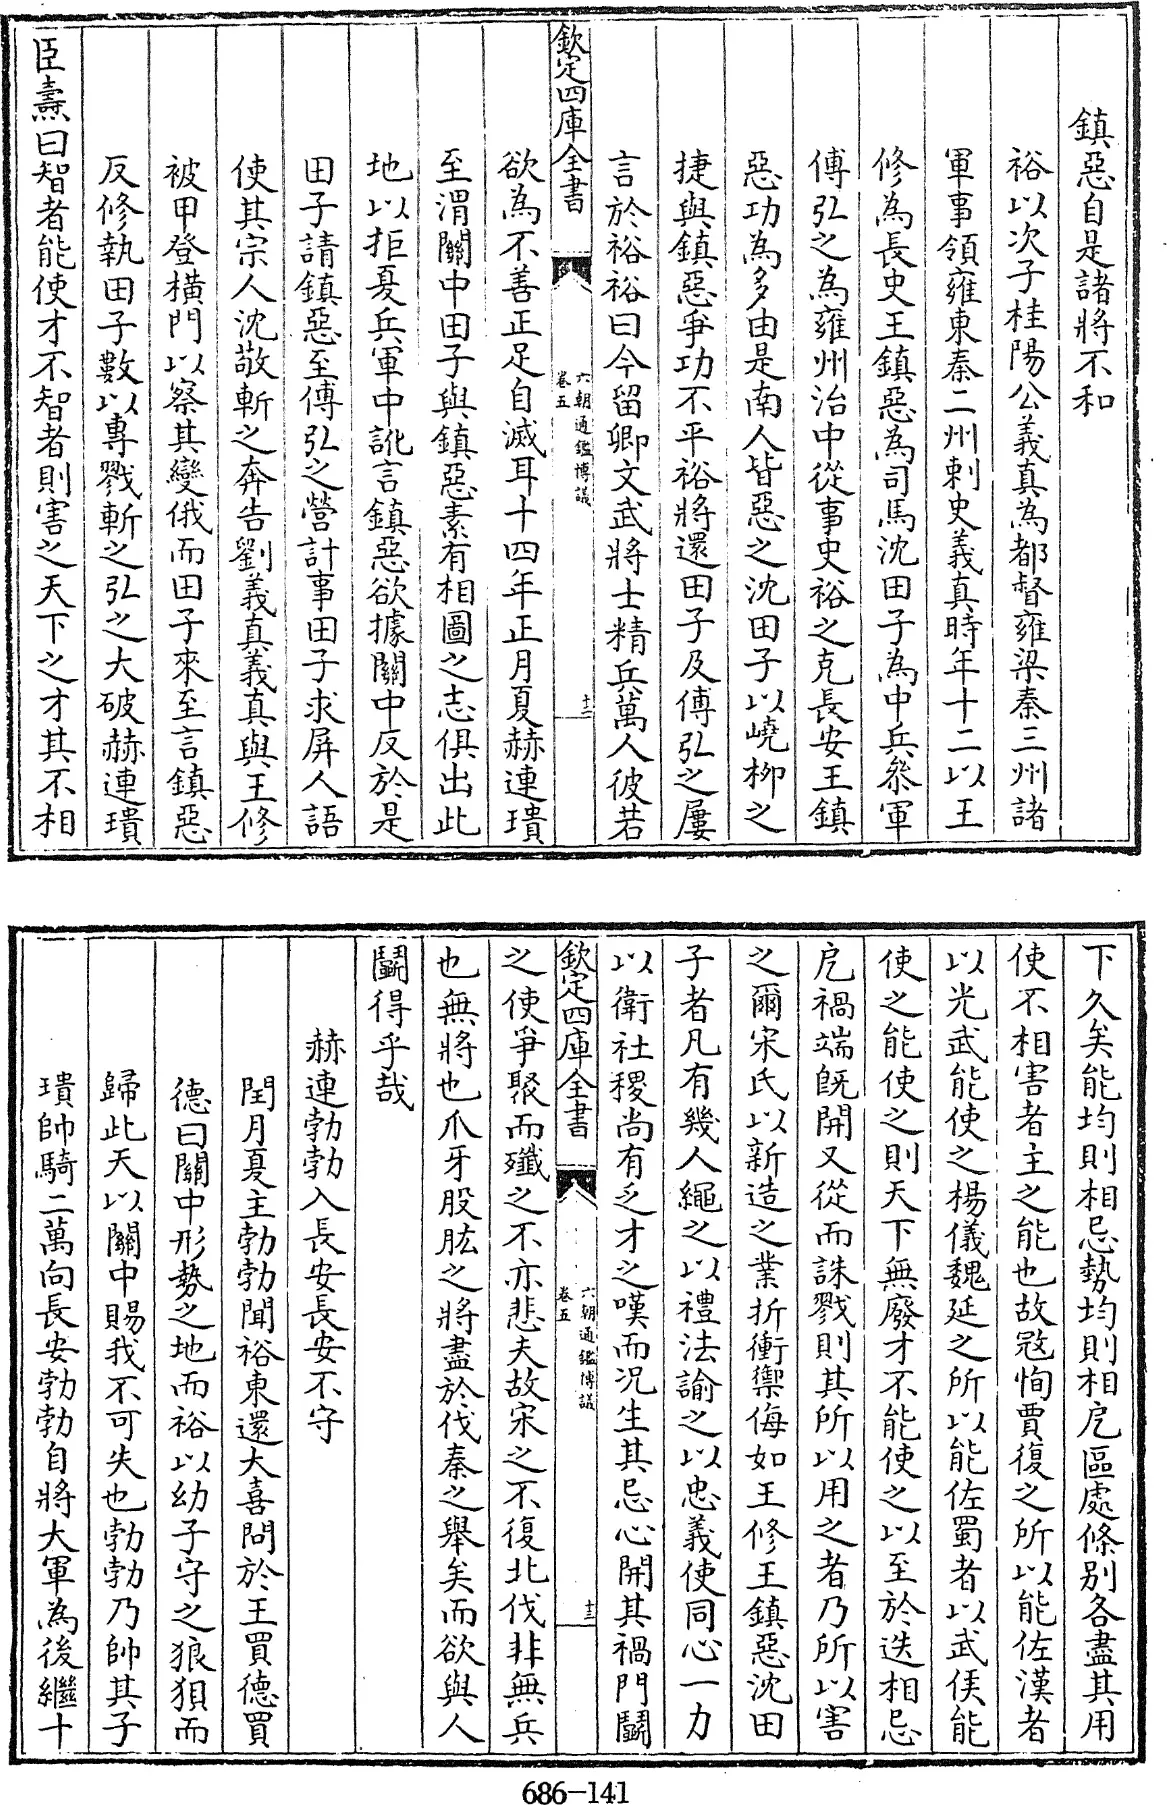 鎮惡自是諸將不和
裕以次子桂陽公義真為都督雍梁秦三州諸
軍事領雍東秦二州刺史義真時年十二以王
修為長史王鎮惡為司馬沈田子為中兵叅軍
傅弘之為雍州治中從事史裕之克長安王鎮
惡功為多由是南人皆惡之沈田子以嶢柳之
捷與鎮惡爭功不平裕將還田子及傅弘之屢
言於裕裕曰今留卿文武將士精兵萬人彼若
欽定四庫全書
六朝通鑑博議
卷五
十二
欲為不善正足自滅耳十四年正月夏赫連璝
至渭關中田子與鎮惡素有相圖之志俱出此
地以拒夏兵軍中訛言鎮惡欲據關中反於是
田子請鎮惡至傅弘之營計事田子求屏人語
使其宗人沈敬斬之奔告劉義真義真與王修
被甲登橫門以察其變俄而田子來至言鎮惡
反修執田子數以專戮斬之弘之大破赫連璝
臣燾曰智者能使才不智者則害之天下之才其不相
下久矣能均則相忌勢均則相戹區處條别各盡其用
使不相害者主之能也故宼恂賈復之所以能佐漢者
以光武能使之楊儀魏延之所以能佐蜀者以武侯能
使之能使之則天下無廢才不能使之以至於迭相忌
戹禍端旣開又從而誅戮則其所以用之者乃所以害
之爾宋氏以新造之業折衝禦侮如王修王鎮惡沈田
子者凡有幾人繩之以禮法諭之以忠義使同心一力
以衛社稷尚有乏才之嘆而况生其忌心開其禍門鬭
欽定四庫全書
六朝通鑑博議
卷五
十三
之使爭聚而殲之不亦悲夫故宋之不復北伐非無兵
也無將也爪牙股肱之將盡於伐秦之舉矣而欲與人
鬭得乎哉
赫連勃勃入長安長安不守
閏月夏主勃勃聞裕東還大喜問於王買德買
德曰關中形勢之地而裕以幼子守之狼狽而
歸此天以關中賜我不可失也勃勃乃帥其子
璝帥騎二萬向長安勃勃自將大軍為後繼十
686-141